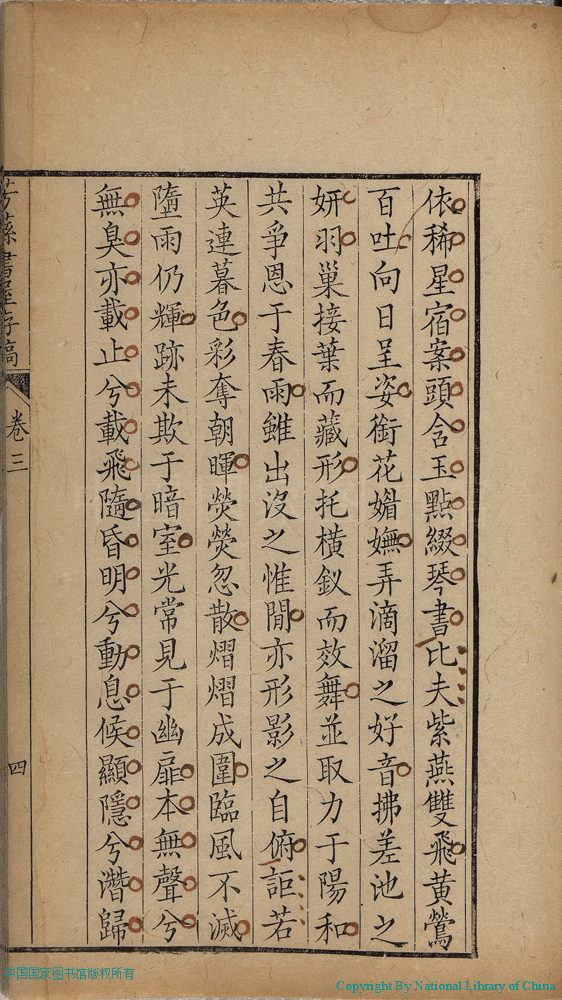 依稀星宿案頭含玉點綴琴書比夫紫燕雙飛黃鶯
百吐向日呈姿銜花媚嫵弄滴溜之好音拂差池之
妍羽巢接葉而藏形托橫釵而效舞並取力于陽和
共爭恩于春雨雖出沒之惟閒亦形影之自俯詎若
英連暮色彩奪朝暉熒熒忽散熠熠成圍臨風不滅
墮雨仍輝跡未欺于暗室光常見于幽扉本無聲兮
無臭亦載止兮載飛隨昏明兮動息候顯隱兮潛歸
芳蓀書屋存稿
卷三
四
中国国家图书馆版权所有
Copyright By National Library of China